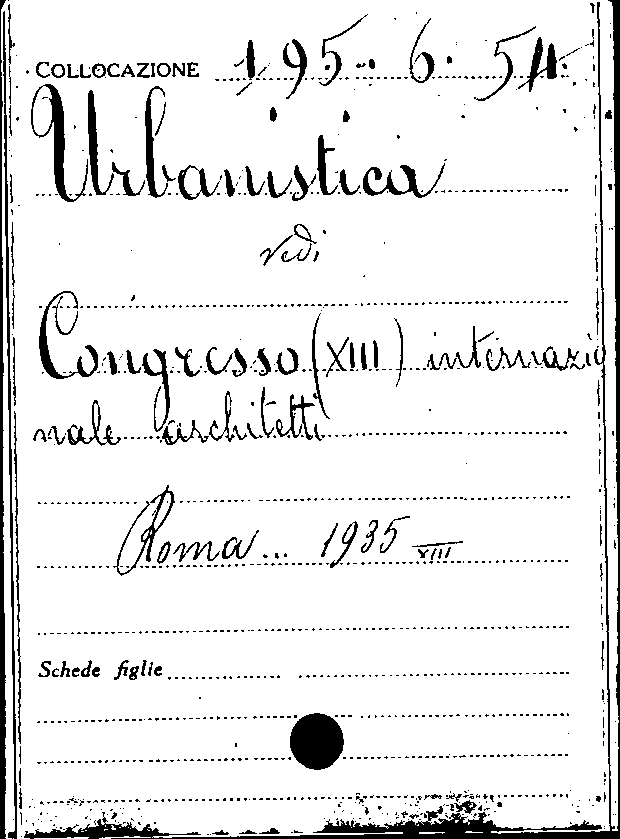 COLLOCAZIONE 195. 6. 54.
Urbanistica
vedi
Congresso (XIII) internazio
nale architetti
Roma... 1935 XIII
Schede figlie